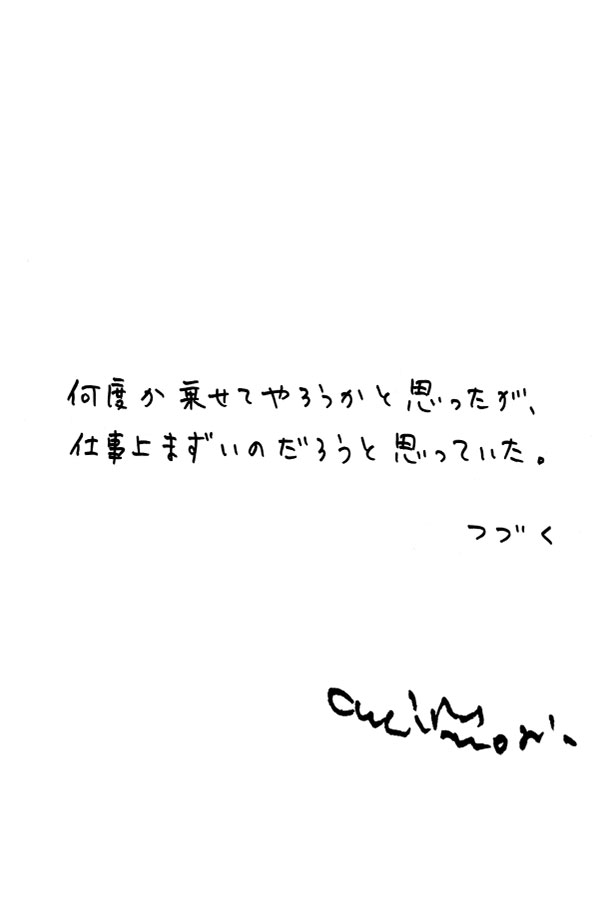 何度か乗せてやろうかと思ったが、
仕事上まずいのだろうと思っていた。
つづく